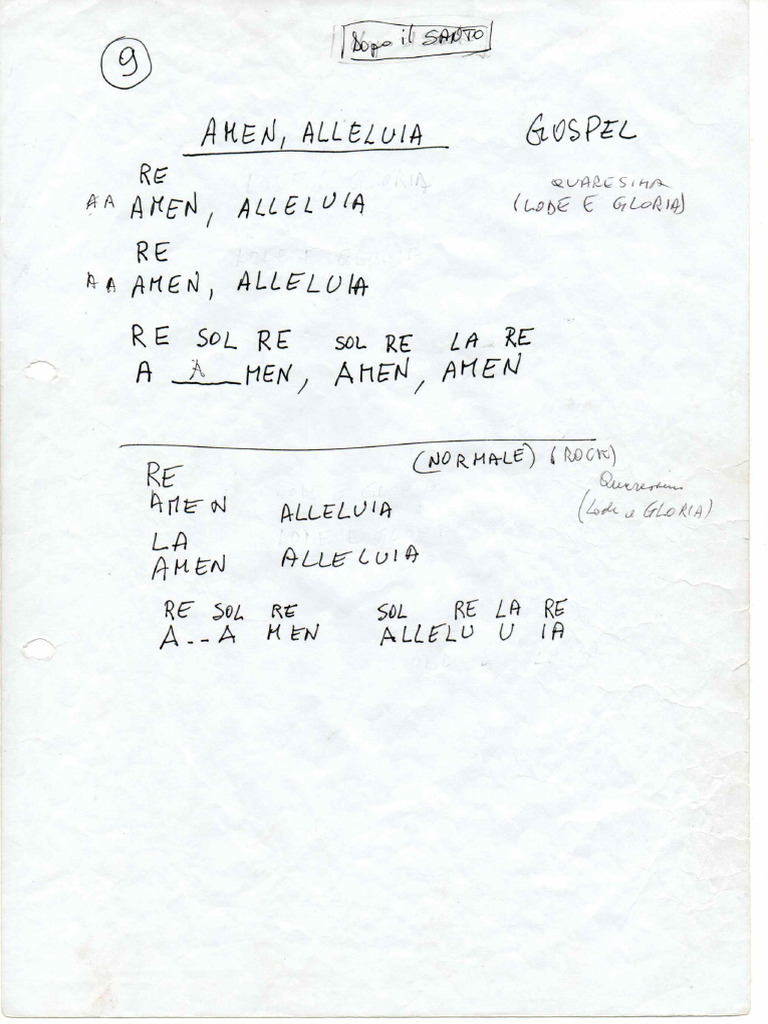 Dopo il SANTO
9
AMEN, ALLELUIA GOSPEL
RE QUARESIMA
AA AMEN, ALLELUIA (LODE E GLORIA)
RE
AA AMEN, ALLELUIA
RE SOL RE SOL RE LA RE
A A MEN, AMEN, AMEN
(NORMALE) (ROCK)
RE Quaresima
AMEN ALLELUIA (Lode e GLORIA)
LA
AMEN ALLELUIA
RE SOL RE SOL RE LA RE
A--A MEN ALLELU U IA